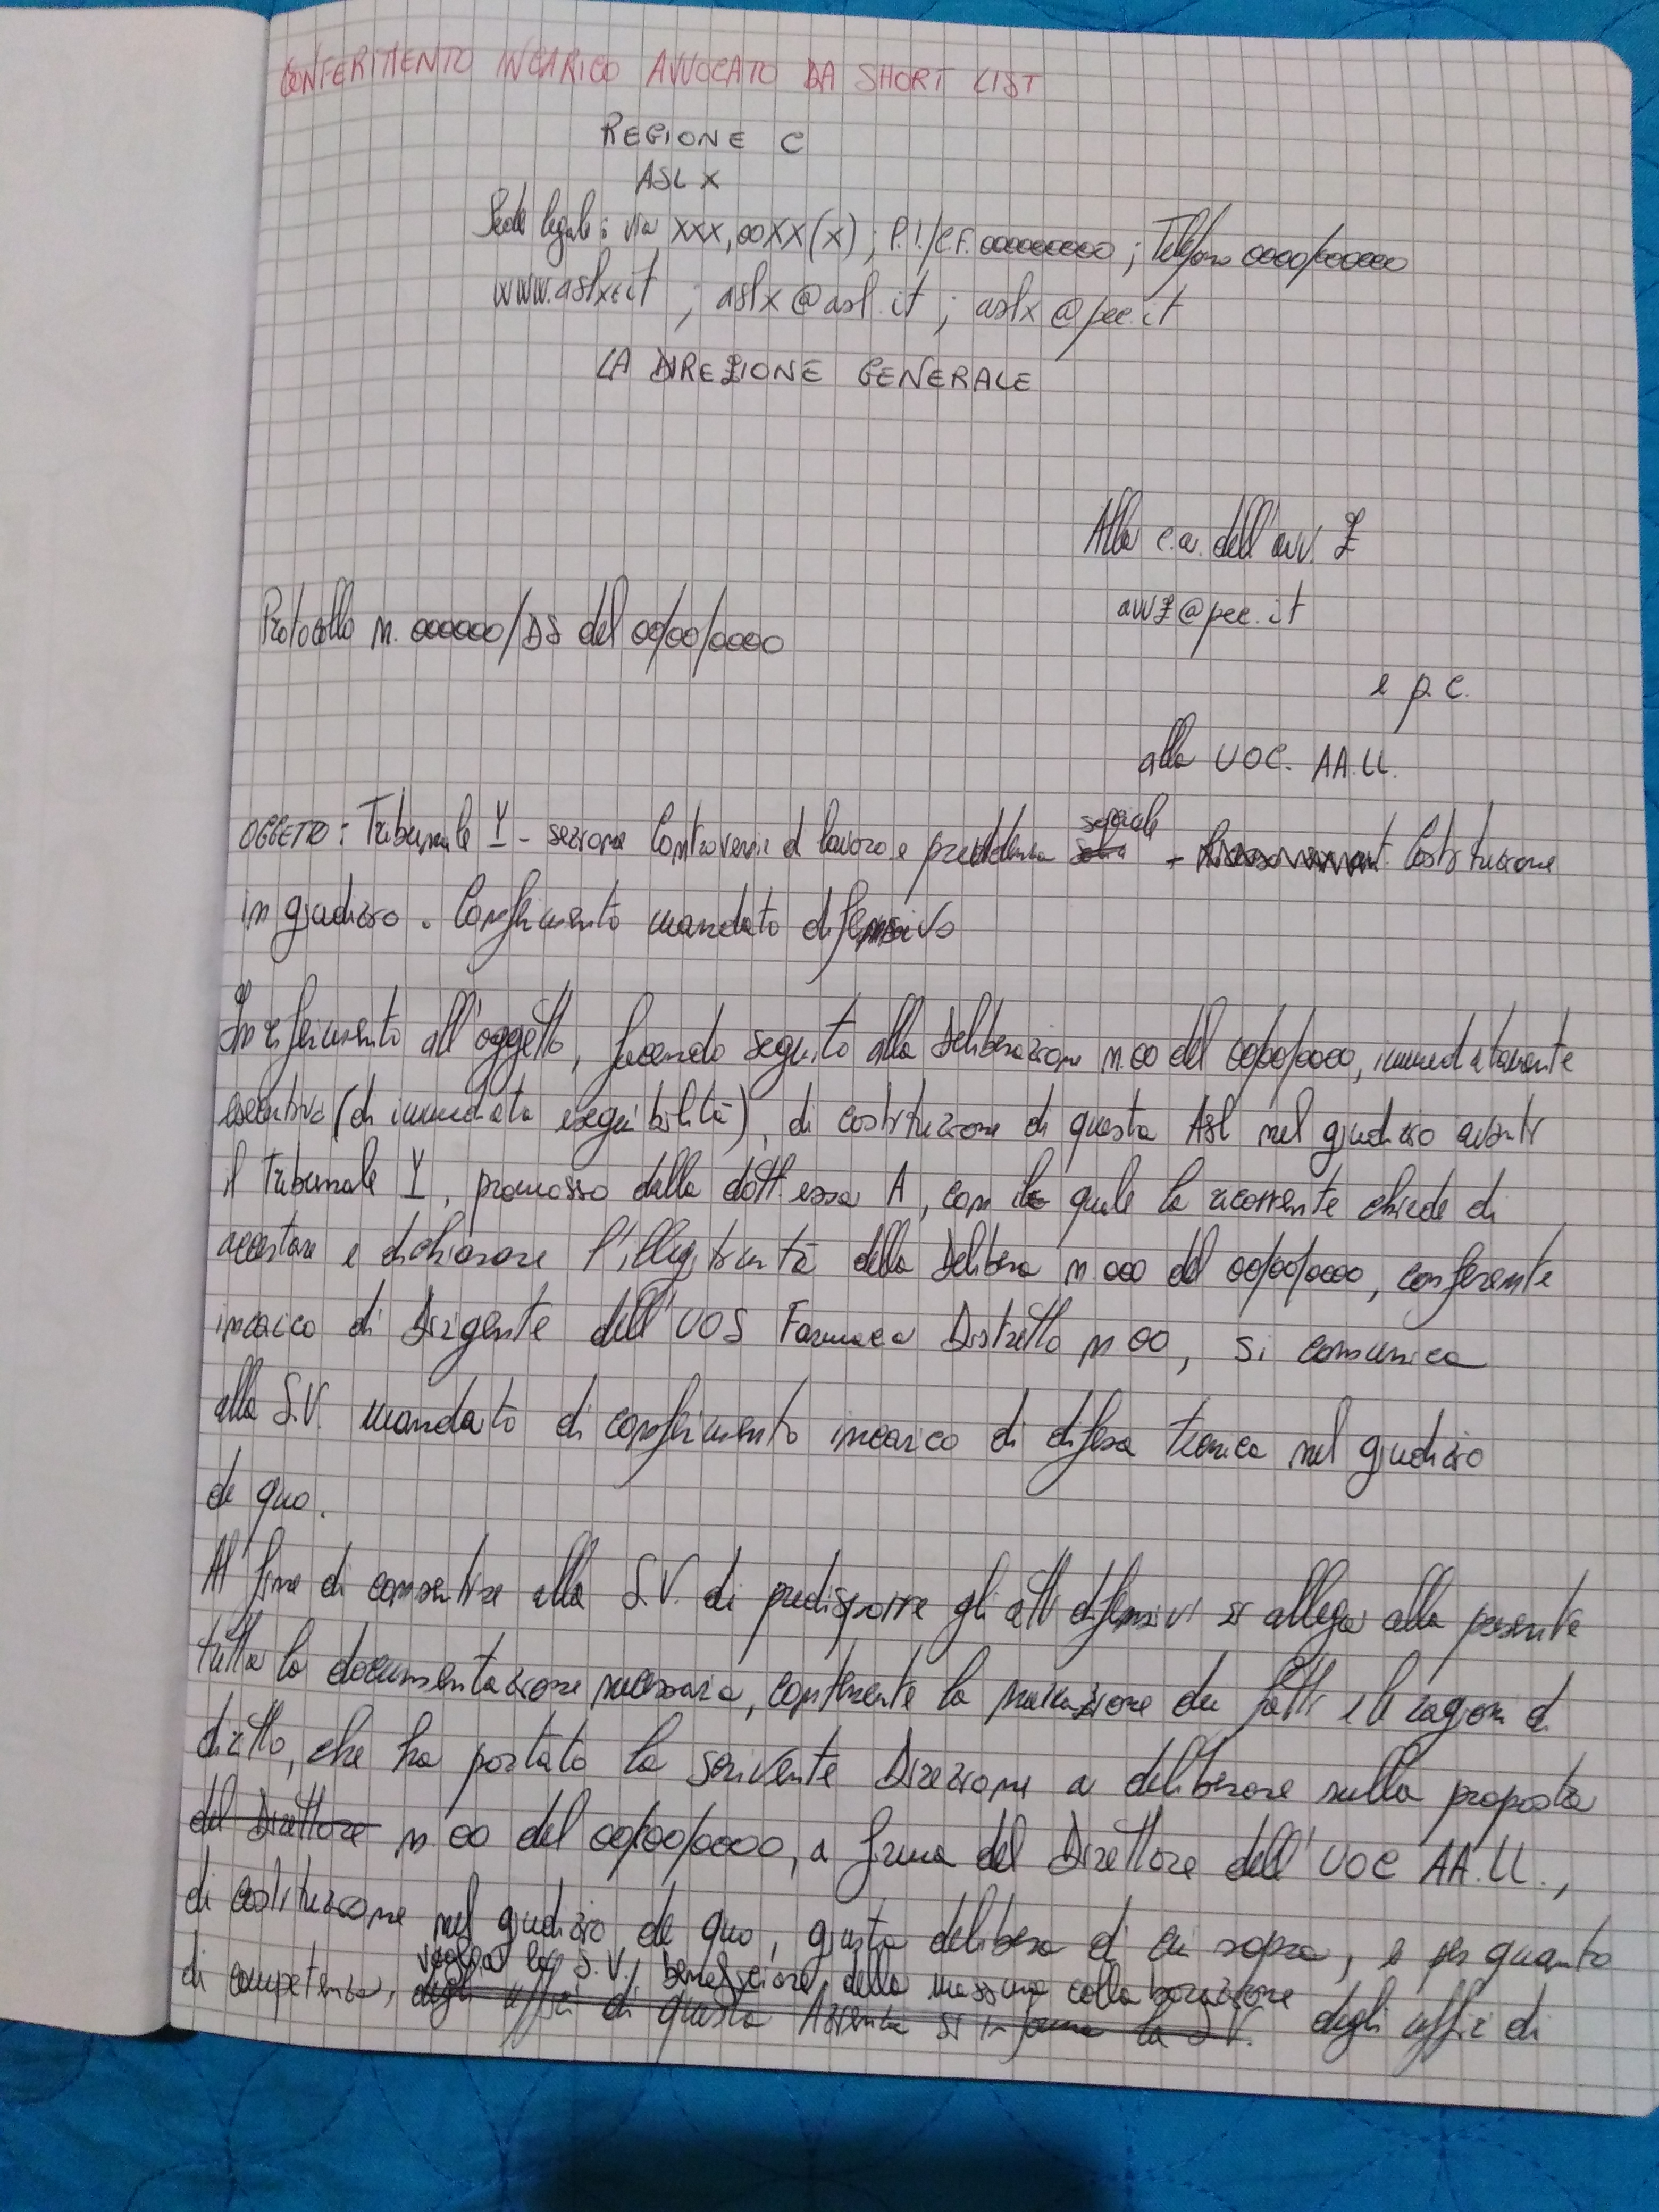 CONFERIMENTO INCARICO AVVOCATO DA SHORT LIST
REGIONE C
ASL X
Sede legale: via XXX, 00XX (X); P.I./C.F. 000000000; Telefono 0000/000000
www.aslx.it ; aslx@asl.it ; aslx@pec.it
LA DIREZIONE GENERALE
Alla c.a. dell'avv. Z
avvZ@pec.it
Protocollo n. 000000/DS del 00/00/0000
e p.c.
alla UOC. AA.LL.
OGGETTO: Tribunale Y - sezione Controversie di lavoro e previdenza sociale - Costituzione
in giudizio. Conferimento mandato difensivo
In riferimento all'oggetto, facendo seguito alla Deliberazione n. 00 del 00/00/0000, immediatamente
esecutiva (di immediata eseguibilità), di costituzione di questa Asl nel giudizio avanti
il Tribunale Y, promosso dalla dott.essa A, con la quale la ricorrente chiede di
accertare e dichiarare l'illegittimità della Delibera n. 000 del 00/00/0000, conferente
incarico di Dirigente dell'UOS Farmacia Distretto n 00, si comunica
alla S.V. mandato di conferimento incarico di difesa tecnica nel giudizio
de quo.
Al fine di consentire alla S.V. di predisporre gli atti difensivi si allega alla presente
tutta la documentazione necessaria, contenente la narrazione dei fatti e le ragioni di
diritto, che ha portato la scrivente Direzione a deliberare sulla proposta
del Direttore n 00 del 00/00/0000, a firma del Direttore dell'UOC AA.LL.,
di costituzione nel giudizio de quo, giusta delibera di cui sopra, e per quanto
voglia la S.V., beneficiare, della massima collaborazione
di competenza, degli uffici di questa Azienda si informa la S.V. degli uffici di